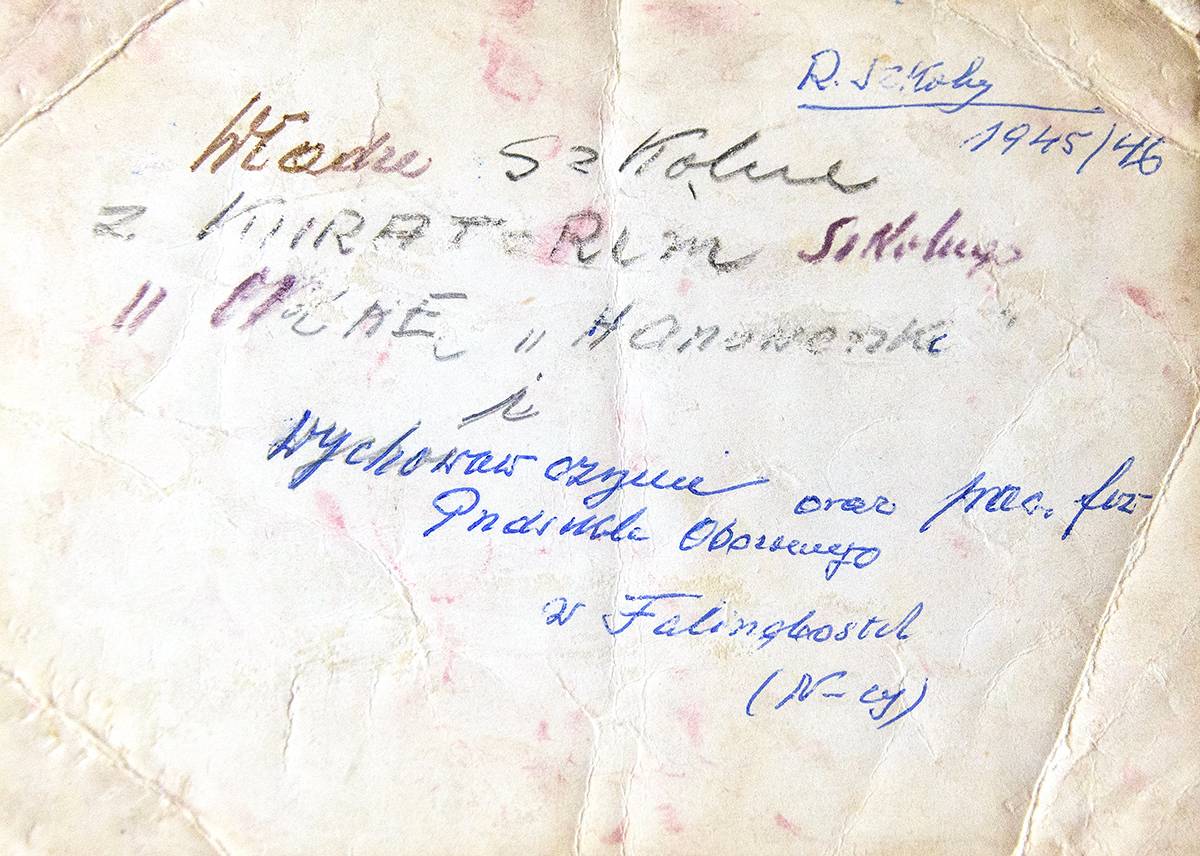 R. Szkolny
1945/46
Władze Szkolne
z KURATOREM Szkolnym
" " Hanowerski "
i
Wychowawczynie oraz prac. fiz
Przedszkola Obozowego
w Falingbostel
(N-cy)